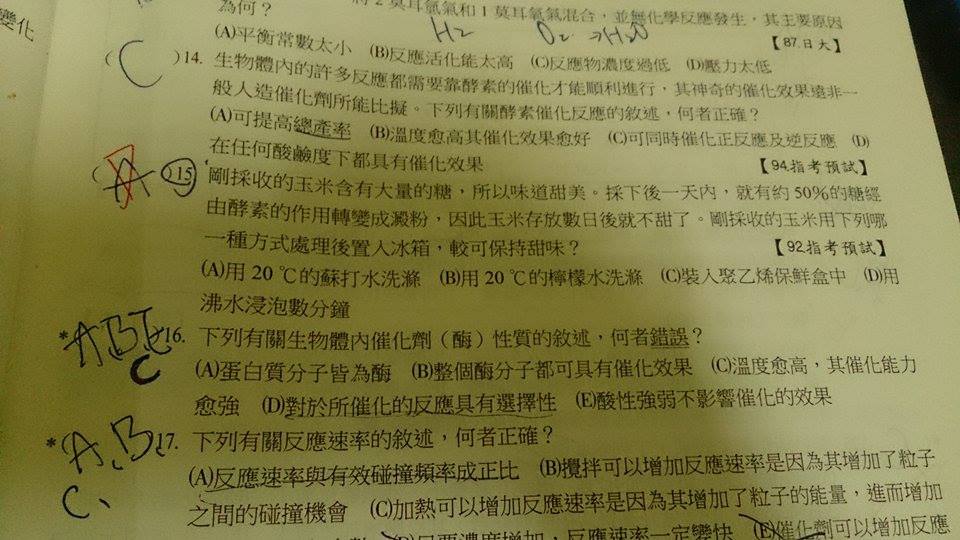 變化
將2莫耳氫氣和1莫耳氧氣混合，並無化學反應發生，其主要原因
為何？ H₂ O₂ →H₂O
(A)平衡常數太小 (B)反應活化能太高 (C)反應物濃度過低 (D)壓力太低 【87.日大】
(C)14. 生物體內的許多反應都需要靠酵素的催化才能順利進行，其神奇的催化效果遠非一
般人造催化劑所能比擬。下列有關酵素催化反應的敘述，何者正確？
(A)可提高總產率 (B)溫度愈高其催化效果愈好 (C)可同時催化正反應及逆反應 (D)
在任何酸鹼度下都具有催化效果 【94.指考預試】
( A )15 剛採收的玉米含有大量的糖，所以味道甜美。採下後一天內，就有約50%的糖經
由酵素的作用轉變成澱粉，因此玉米存放數日後就不甜了。剛採收的玉米用下列哪
一種方式處理後置入冰箱，較可保持甜味？ 【92.指考預試】
(A)用 20 ℃的蘇打水洗滌 (B)用 20 ℃的檸檬水洗滌 (C)裝入聚乙烯保鮮盒中 (D)用
沸水浸泡數分鐘
* ABE C 16. 下列有關生物體內催化劑（酶）性質的敘述，何者錯誤？
(A)蛋白質分子皆為酶 (B)整個酶分子都可具有催化效果 (C)溫度愈高，其催化能力
愈強 (D)對於所催化的反應具有選擇性 (E)酸性強弱不影響催化的效果
* A、B、 17. 下列有關反應速率的敘述，何者正確？
C、 (A)反應速率與有效碰撞頻率成正比 (B)攪拌可以增加反應速率是因為其增加了粒子
之間的碰撞機會 (C)加熱可以增加反應速率是因為其增加了粒子的能量，進而增加
(D)只要濃度增加，反應速率一定變快 (E)催化劑可以增加反應